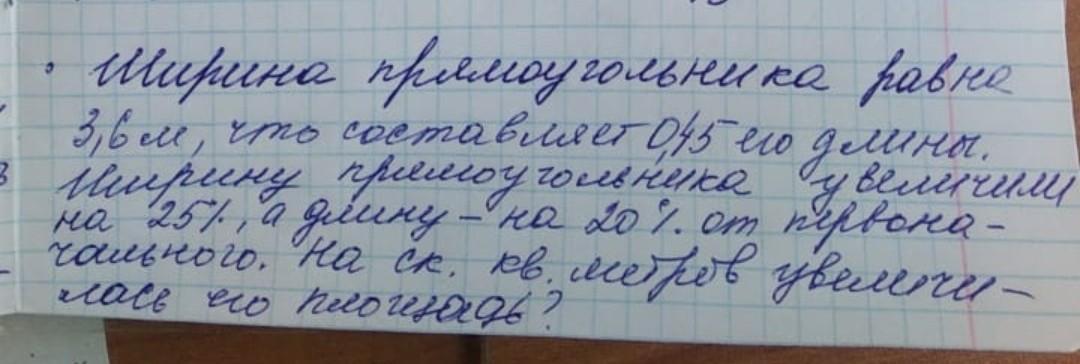 Ширина прямоугольника равна
3,6 м, что составляет 0,45 его длины.
Ширину прямоугольника увеличили
на 25%, а длину – на 20% от первона-
чального. На ск. кв. метров увеличи-
лась его площадь?